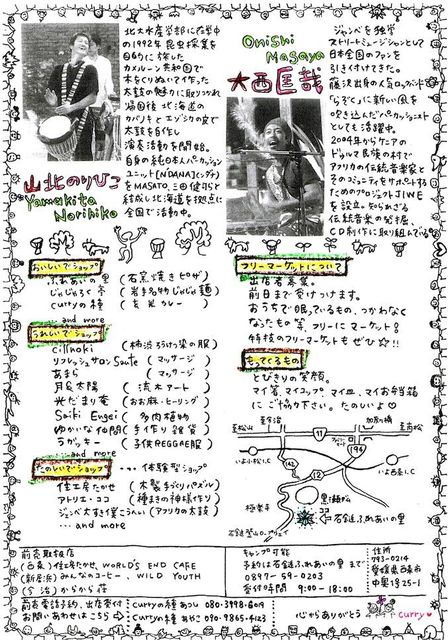 北大水産学部に在学中
の1992年 昆虫採集を
目的に旅した
カメルーン共和国で
木をくりぬいて作った
太鼓の魅力に取りつかれ
帰国後 北海道の
カバノキとエゾシカの皮で
太鼓を自作し
演奏活動を開始。
自身の純日本人パーカッション
ユニット【NDANA】(ンダナ)
をMASATO、三田健司と
結成し北海道を拠点に
全国で活動中。
山北のりひこ
Yamakita
Norihiko
Onishi
Masaya
大西匡哉
ジャンベを独学
ストリートミュージシャンとして
日本全国のファンを
引き付けてきた。
藤沢出身の人気ロックバンド
「らぞく」に新しい風を
吹き込んだパーカッショニスト
としても活躍中。
2004年からケニアの
ドゥルマ民族の村で
アフリカの伝統音楽家と
そのコミュニティをサポートする
ためのプロジェクトJIWE
を設立。知られざる
伝統音楽の発掘、
CD制作に取り組んでいる。
おいしいでショップ
ふれあいの里 (石窯焼きピザ)
じゅじゅく亭 (岩手名物じゃじゃ麺)
curryの種 (玄米カレー)
...... and more
うれしいでショップ
cillnoki (柿渋ろうけつ染の服)
リフレッシュサロン Saute (マッサージ)
あまら (マッサージ)
月と太陽 (流木アート)
光だまり庵 (お灸・ヒーリング)
Saiki Engei (多肉植物)
ゆかいな仲間 (手作り雑貨)
ラガッキー (子供REGGAE服)
たのしいでショップ ・・・体験型ショップ
住工房たかせ (木製手づくりパズル)
アトリエ・ココ (種まきの神様作り)
ジャンベ大すき僕こうへい (アフリカの太鼓)
... and more
フリーマーケットについて
出店者募集。
前日まで受けつけます。
おうちで眠っているもの、つかわなく
なったもの等、フリーにマーケット♪
特技のフリーマーケットもぜひ☆!!
もってくるもの
とびきりの笑顔。
マイ箸、マイコップ、マイ皿、マイお弁当箱
にご協力下さい。たのしいよ♡
至松山
至今治
加茂の橋
至高松
11
194
142
12
いよ小松I.C
いよ西条I.C
極楽寺
黒瀬ダム
ココ
石鎚ふれあいの里
石鎚登山ロープウェイ
前売取扱店
(西条) 住工房たかせ, WORLD'S END CAFE
(新居浜) みんなのコーヒー, WILD YOUTH
(今治) からから荘
前売電話予約、出店受付
お問いあわせはこちら
curryの種 あつし 080-3998-8609
curryの種 あやこ 090-9865-4123
キャンプ可能
予約は石鎚ふれあいの里まで
0897-59-0203
受付時間 9:00-18:00
住所
793-0214
愛媛県西条市
中奥1号25-1
心からありがとう
curry♥